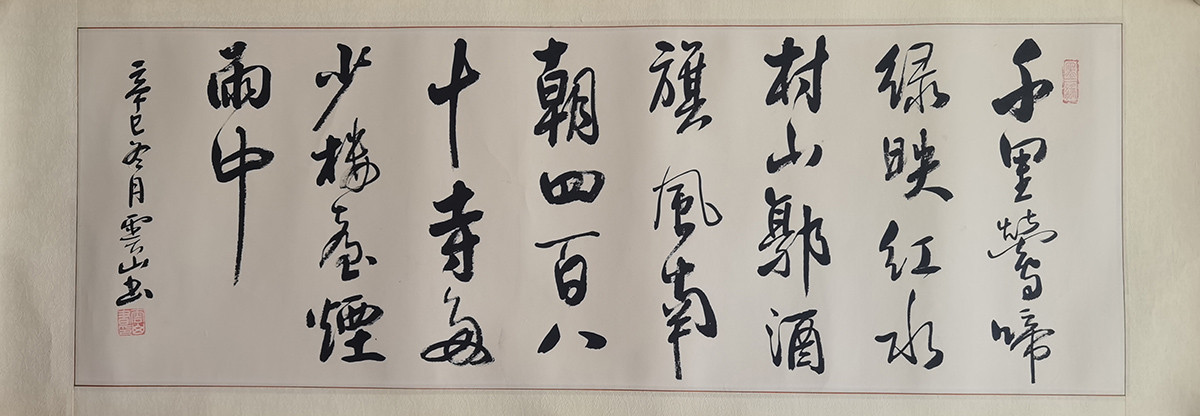 千里鶯啼
绿映红水
村山郭酒
旗風南
朝四百八
十寺多
少楼臺煙
雨中
辛巳冬月雲山书